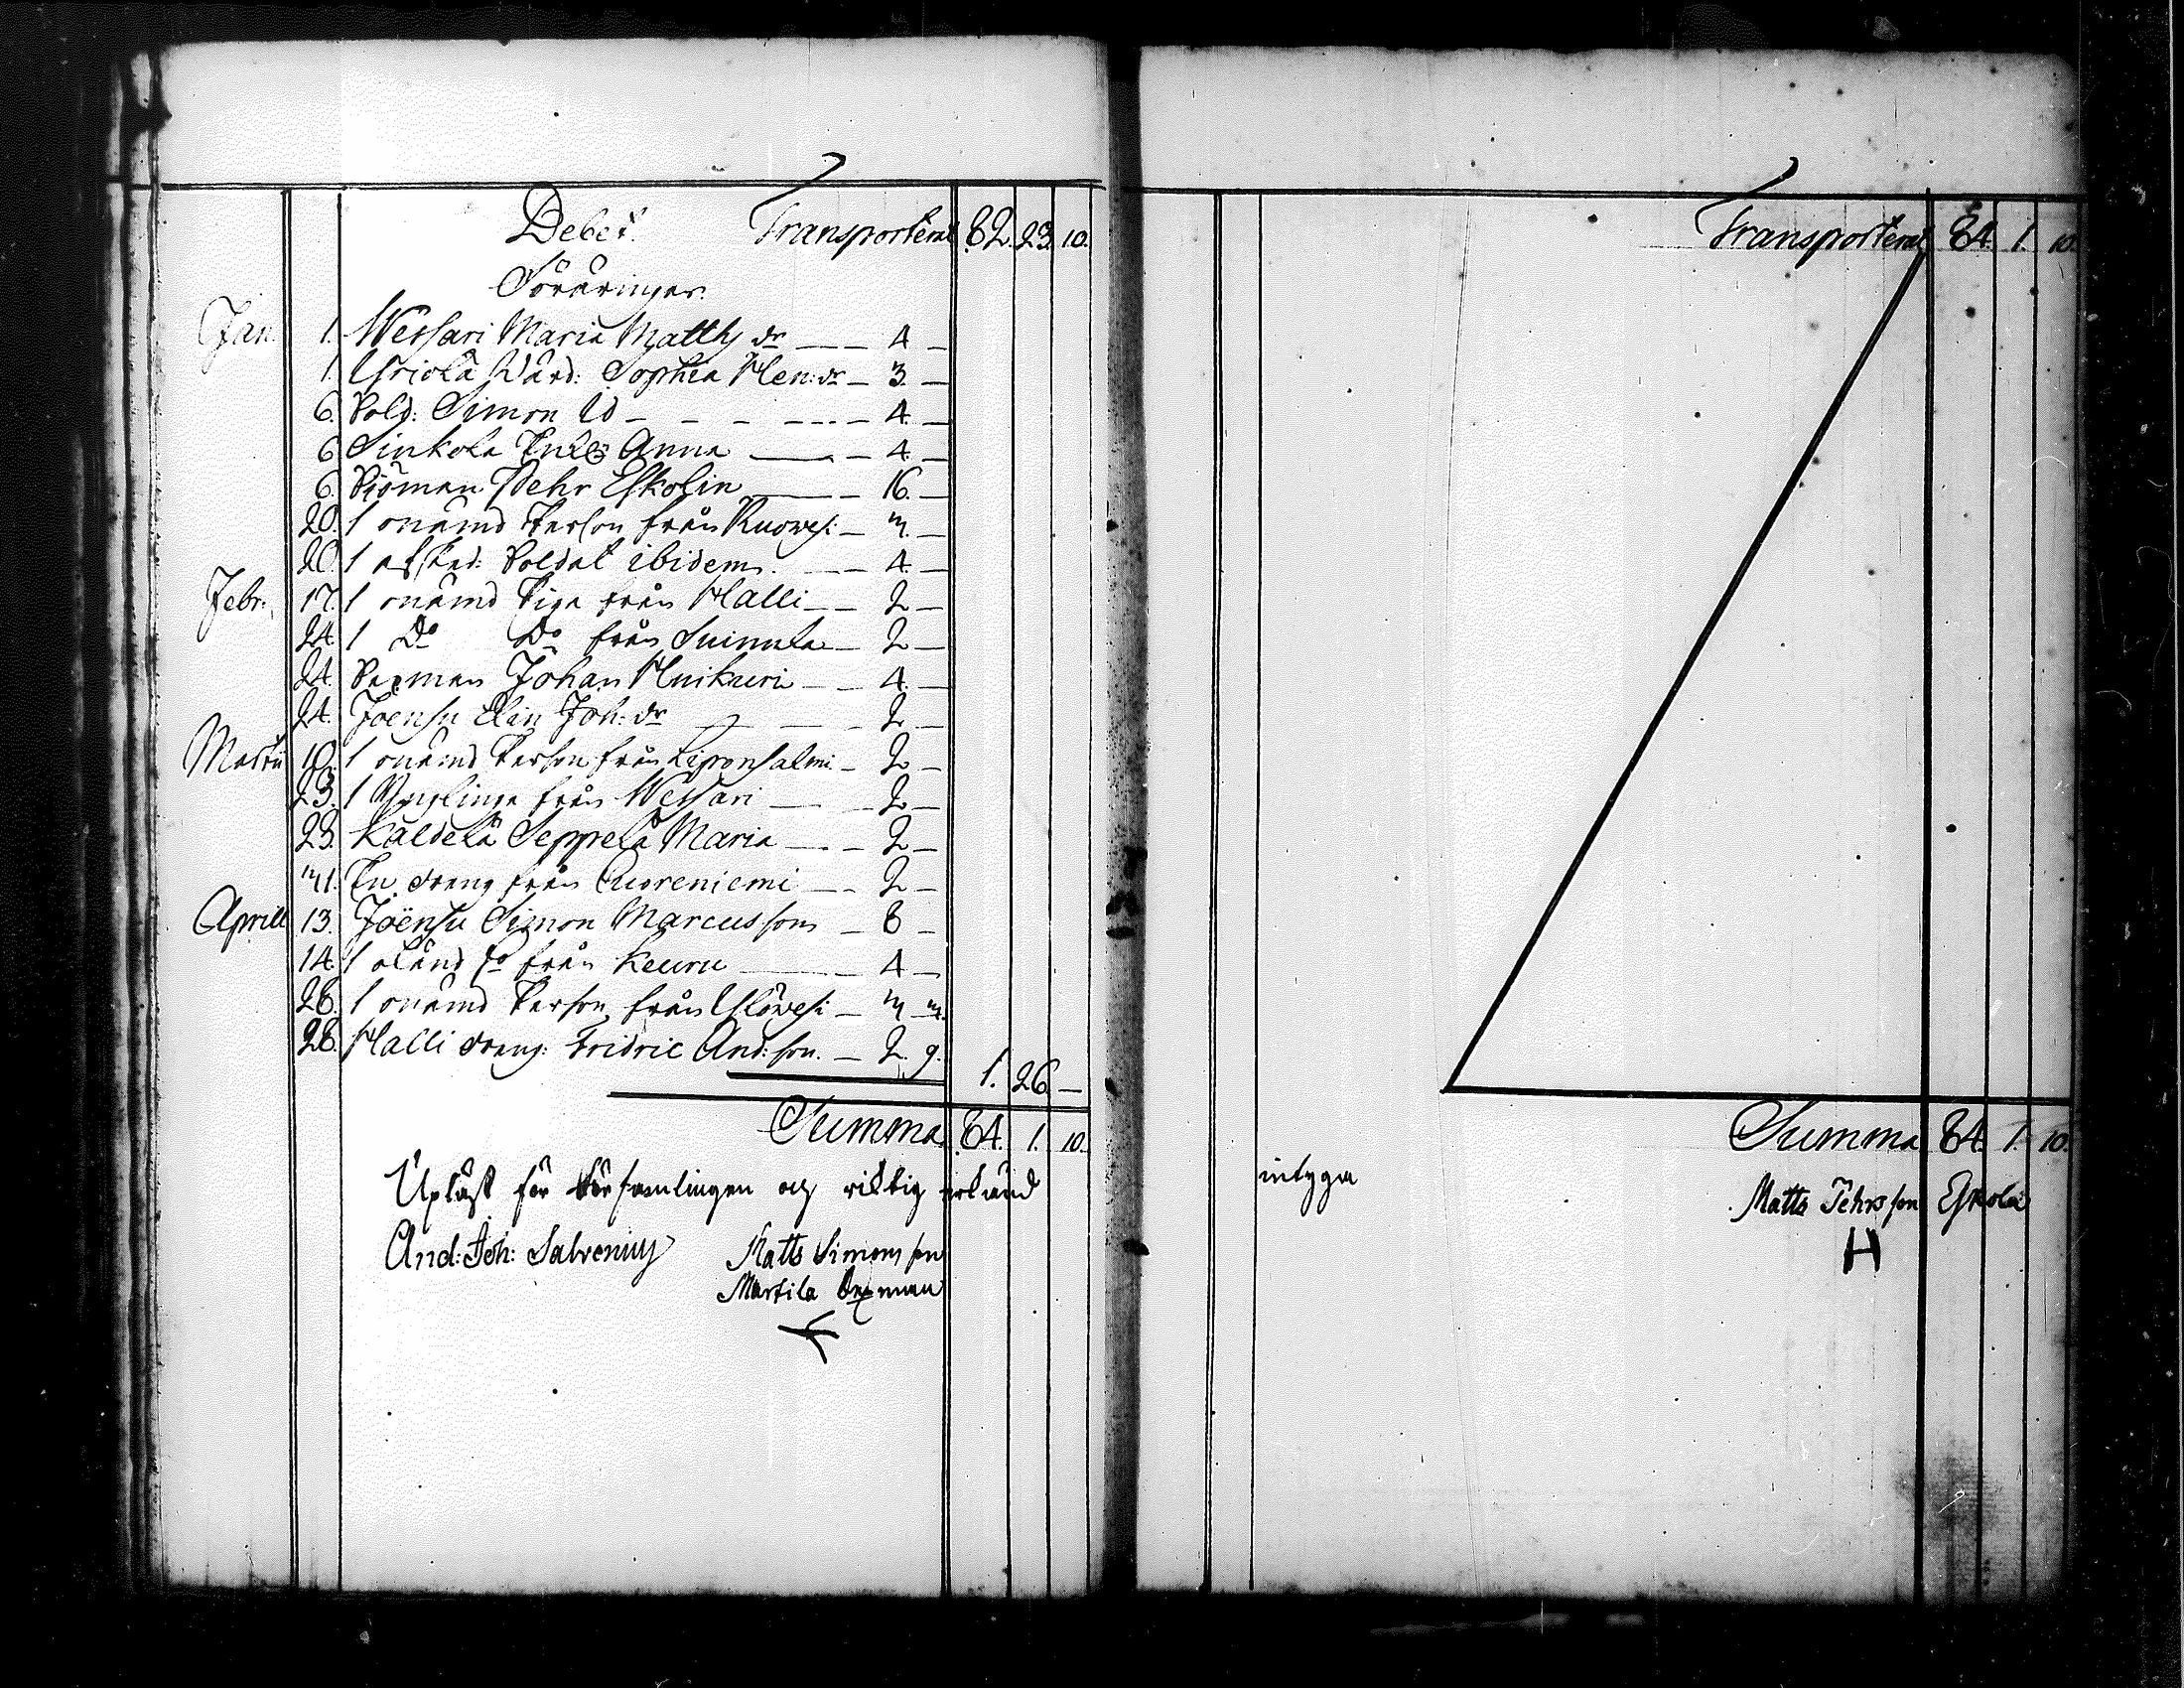 Debet. Transporterat 82. 23. 10.
Föräringar.
Jan. 1. Wessari Maria Matths dr — 4 —
1. Yriölä Wärd: Sophia Hen: dr — 3. —
6. Sold: Simon Ed — 4. —
6 Sinkola Enk: Anna — 4. —
6. Båsman Pehr Eskolin — 16. —
20. 1 onämd Person från Ruowesi — 3. —
20. 1 afsked: Soldat ibidem — 4. —
Febr: 17. 1 onämd Piga från Halli — 2 —
24. 1 Do Do från Suinula — 2 —
24. Sexman Johan Huikuri — 4. —
24. Joensu Elin Joh: dr — 2 —
Martii 10. 1 onämd Person från Liponsalmi — 2 —
23. 1 Ynglinga från Wessari — 2 —
23. Kaldela Seppelä Maria — 2 —
31. En dräng från Cuoreniemi — 2 —
Aprill 13. Joënsu Simon Marcusson — 8 —
14. 1 okänd do från Keuru — 4 —
28. 1 onämd Person från Ylöwesi — 3 3.
28. Halli dräng: Fridric And: son. — 2. 9.
1. 26 —
Summa 84. 1. 10.
Upläst för Församlingen och riktig erkänd
And: Joh: Salvenius Matts Simonsson
Martila Sexman
Transporterat 84. 1. 10.
Summa 84. 1. 10.
intyga
Matts Pehrsson Eskola
H